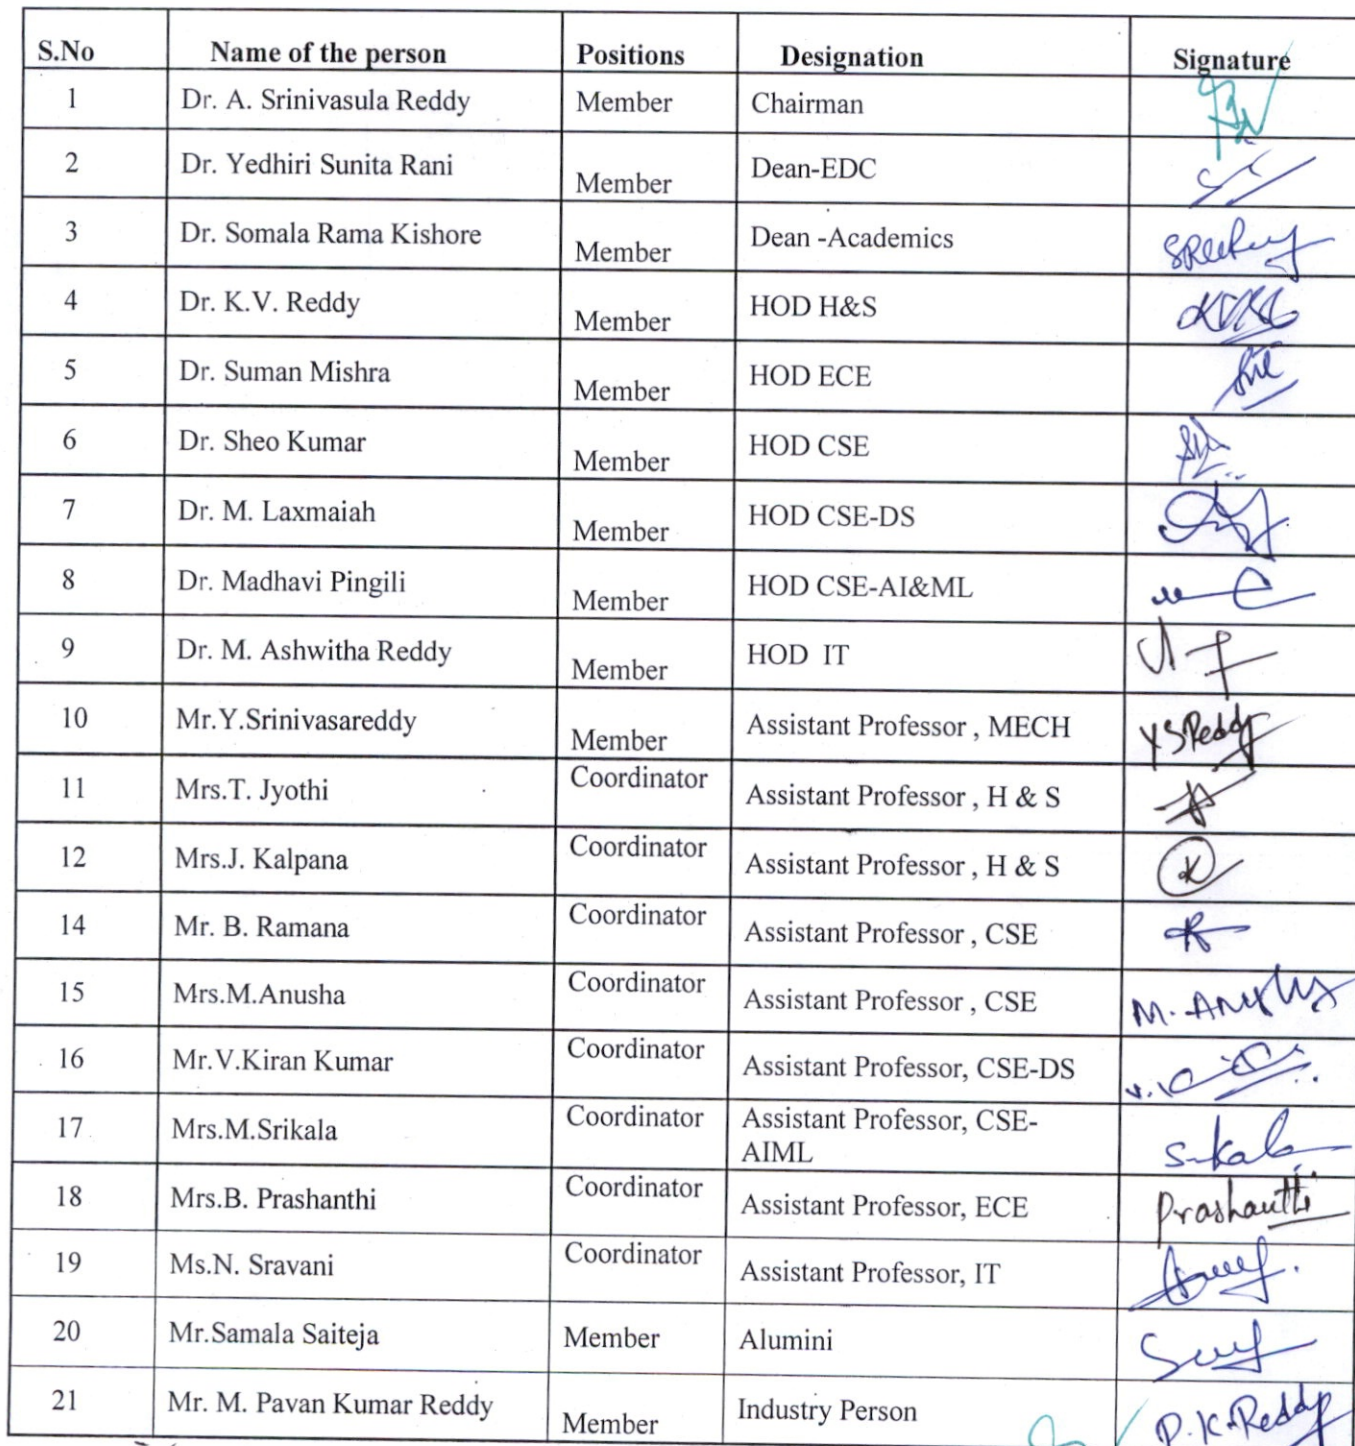 S.No Name of the person Positions Designation Signature
1 Dr. A. Srinivasula Reddy Member Chairman
2 Dr. Yedhiri Sunita Rani Member Dean-EDC
3 Dr. Somala Rama Kishore Member Dean -Academics
4 Dr. K.V. Reddy Member HOD H&S
5 Dr. Suman Mishra Member HOD ECE
6 Dr. Sheo Kumar Member HOD CSE
7 Dr. M. Laxmaiah Member HOD CSE-DS
8 Dr. Madhavi Pingili Member HOD CSE-AI&ML
9 Dr. M. Ashwitha Reddy Member HOD IT
10 Mr.Y.Srinivasareddy Member Assistant Professor , MECH YSReddy
11 Mrs.T. Jyothi Coordinator Assistant Professor , H & S
12 Mrs.J. Kalpana Coordinator Assistant Professor , H & S
14 Mr. B. Ramana Coordinator Assistant Professor , CSE
15 Mrs.M.Anusha Coordinator Assistant Professor , CSE
16 Mr.V.Kiran Kumar Coordinator Assistant Professor, CSE-DS
17 Mrs.M.Srikala Coordinator Assistant Professor, CSE-
AIML
18 Mrs.B. Prashanthi Coordinator Assistant Professor, ECE Prashanthi
19 Ms.N. Sravani Coordinator Assistant Professor, IT
20 Mr.Samala Saiteja Member Alumini
21 Mr. M. Pavan Kumar Reddy Member Industry Person P.K.Reddy